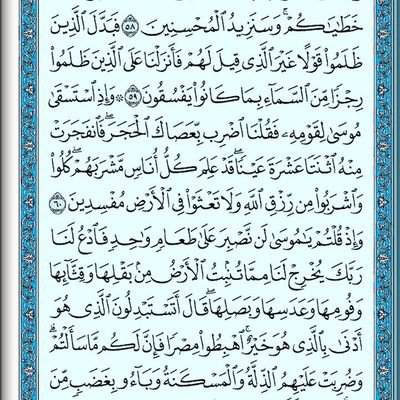 خَطَٰيَٰكُمْ ۚ وَسَنَزِيدُ ٱلْمُحْسِنِينَ ٥٨ فَبَدَّلَ ٱلَّذِينَ
ظَلَمُوا۟ قَوْلًا غَيْرَ ٱلَّذِى قِيلَ لَهُمْ فَأَنزَلْنَا عَلَى ٱلَّذِينَ ظَلَمُوا۟
رِجْزًا مِّنَ ٱلسَّمَآءِ بِمَا كَانُوا۟ يَفْسُقُونَ ٥٩ ۞ وَإِذِ ٱسْتَسْقَىٰ
مُوسَىٰ لِقَوْمِهِۦ فَقُلْنَا ٱضْرِب بِّعَصَاكَ ٱلْحَجَرَ ۖ فَٱنفَجَرَتْ
مِنْهُ ٱثْنَتَا عَشْرَةَ عَيْنًا ۖ قَدْ عَلِمَ كُلُّ أُنَاسٍ مَّشْرَبَهُمْ ۖ كُلُوا۟
وَٱشْرَبُوا۟ مِن رِّزْقِ ٱللَّهِ وَلَا تَعْثَوْا۟ فِى ٱلْأَرْضِ مُفْسِدِينَ ٦٠
وَإِذْ قُلْتُمْ يَٰمُوسَىٰ لَن نَّصْبِرَ عَلَىٰ طَعَامٍ وَٰحِدٍ فَٱدْعُ لَنَا
رَبَّكَ يُخْرِجْ لَنَا مِمَّا تُنۢبِتُ ٱلْأَرْضُ مِنۢ بَقْلِهَا وَقِثَّآئِهَا
وَفُومِهَا وَعَدَسِهَا وَبَصَلِهَا ۖ قَالَ أَتَسْتَبْدِلُونَ ٱلَّذِى هُوَ
أَدْنَىٰ بِٱلَّذِى هُوَ خَيْرٌ ۚ ٱهْبِطُوا۟ مِصْرًا فَإِنَّ لَكُم مَّا سَأَلْتُمْ ۗ
وَضُرِبَتْ عَلَيْهِمُ ٱلذِّلَّةُ وَٱلْمَسْكَنَةُ وَبَآءُو بِغَضَبٍ مِّنَ